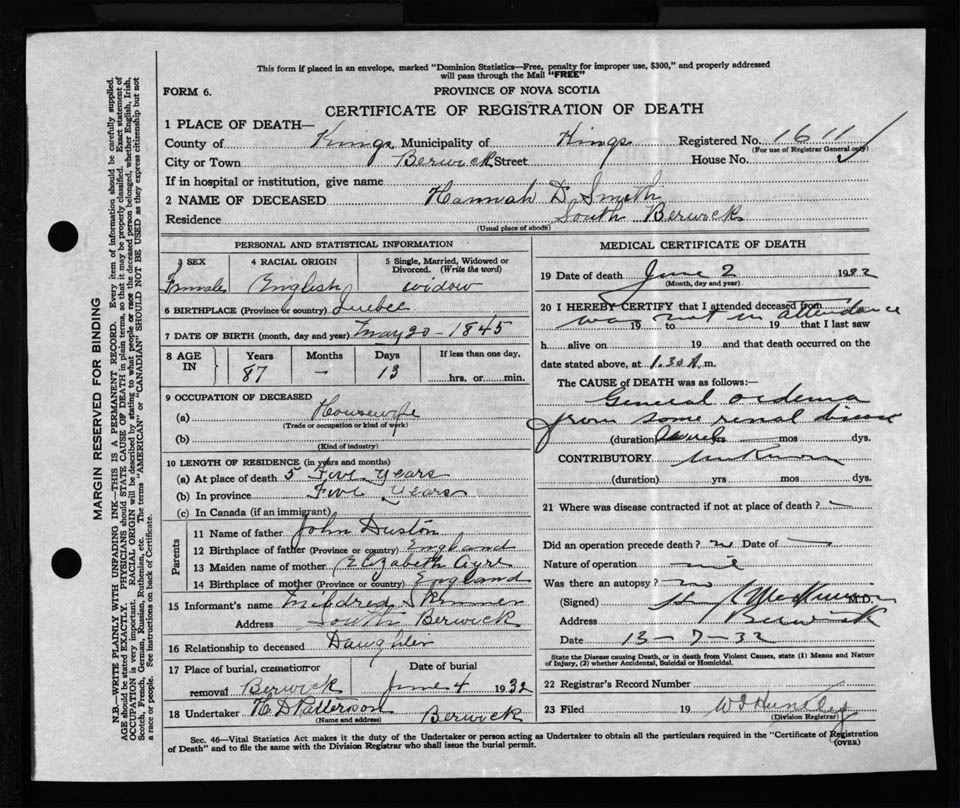 This form if placed in an envelope, marked "Dominion Statistics—Free, penalty for improper use, $300," and properly addressed
will pass through the Mail "FREE"
FORM 6.
PROVINCE OF NOVA SCOTIA
CERTIFICATE OF REGISTRATION OF DEATH
1 PLACE OF DEATH—
County of Kings Municipality of Kings Registered No. 1611
(For use of Registrar General only)
City or Town Berwick Street House No.
If in hospital or institution, give name
2 NAME OF DECEASED Hannah D. Smith
Residence South Berwick
(Usual place of abode)
PERSONAL AND STATISTICAL INFORMATION
3 SEX 4 RACIAL ORIGIN 5 Single, Married, Widowed or
Divorced. (Write the word)
Female English widow
6 BIRTHPLACE (Province or country) Quebec
7 DATE OF BIRTH (month, day and year) May 20 - 1845
8 AGE IN Years Months Days If less than one day,
87 - 13 hrs. or min.
9 OCCUPATION OF DECEASED
(a) Housewife
(Trade or occupation or kind of work)
(b)
(Kind of industry)
10 LENGTH OF RESIDENCE (in years and months)
(a) At place of death 5 Five years
(b) In province Five years
(c) In Canada (if an immigrant)
Parents
11 Name of father John Duston
12 Birthplace of father (Province or country) England
13 Maiden name of mother Elizabeth Ayre
14 Birthplace of mother (Province or country) England
15 Informant's name Mildred Skinner
Address South Berwick
16 Relationship to deceased Daughter
17 Place of burial, cremation or Date of burial
removal Berwick June 4 1932
18 Undertaker H D Patterson Berwick
(Name and address)
MEDICAL CERTIFICATE OF DEATH
19 Date of death June 2 1932
(Month, day and year)
20 I HEREBY CERTIFY that I attended deceased from
was not in attendance
19 to 19 that I last saw
h alive on 19 and that death occurred on the
date stated above, at 1.30 A. m.
The CAUSE of DEATH was as follows:
General oedema
from some renal disease
(duration) yrs mos dys.
CONTRIBUTORY unknown
(duration) yrs mos dys.
21 Where was disease contracted if not at place of death? -
Did an operation precede death? no Date of -
Nature of operation nil
Was there an autopsy? no
(Signed) M.D.
Address Berwick
Date 13-7-32
State the Disease causing Death, or in death from Violent Causes, state (1) Means and Nature
of Injury, (2) whether Accidental, Suicidal or Homicidal.
22 Registrar's Record Number
23 Filed 19 W I Huntley
(Division Registrar)
Sec. 46—Vital Statistics Act makes it the duty of the Undertaker or person acting as Undertaker to obtain all the particulars required in the "Certificate of Registration
of Death" and to file the same with the Division Registrar who shall issue the burial permit.
(OVER)
MARGIN RESERVED FOR BINDING
N.B.—WRITE PLAINLY WITH UNFADING INK—THIS IS A PERMANENT RECORD. Every item of information should be carefully supplied.
AGE should be stated EXACTLY. PHYSICIANS should STATE CAUSE OF DEATH in plain terms, so that it may be properly classified. Exact statement of
OCCUPATION is very important. RACIAL ORIGIN will be described by stating to what people or race the deceased person belonged, whether English, Irish,
Scotch, French, German, Russian, Ruthenian, etc. The terms "AMERICAN" or "CANADIAN" SHOULD NOT BE USED as they express citizenship but not
a race or people. See instructions on back of Certificate.